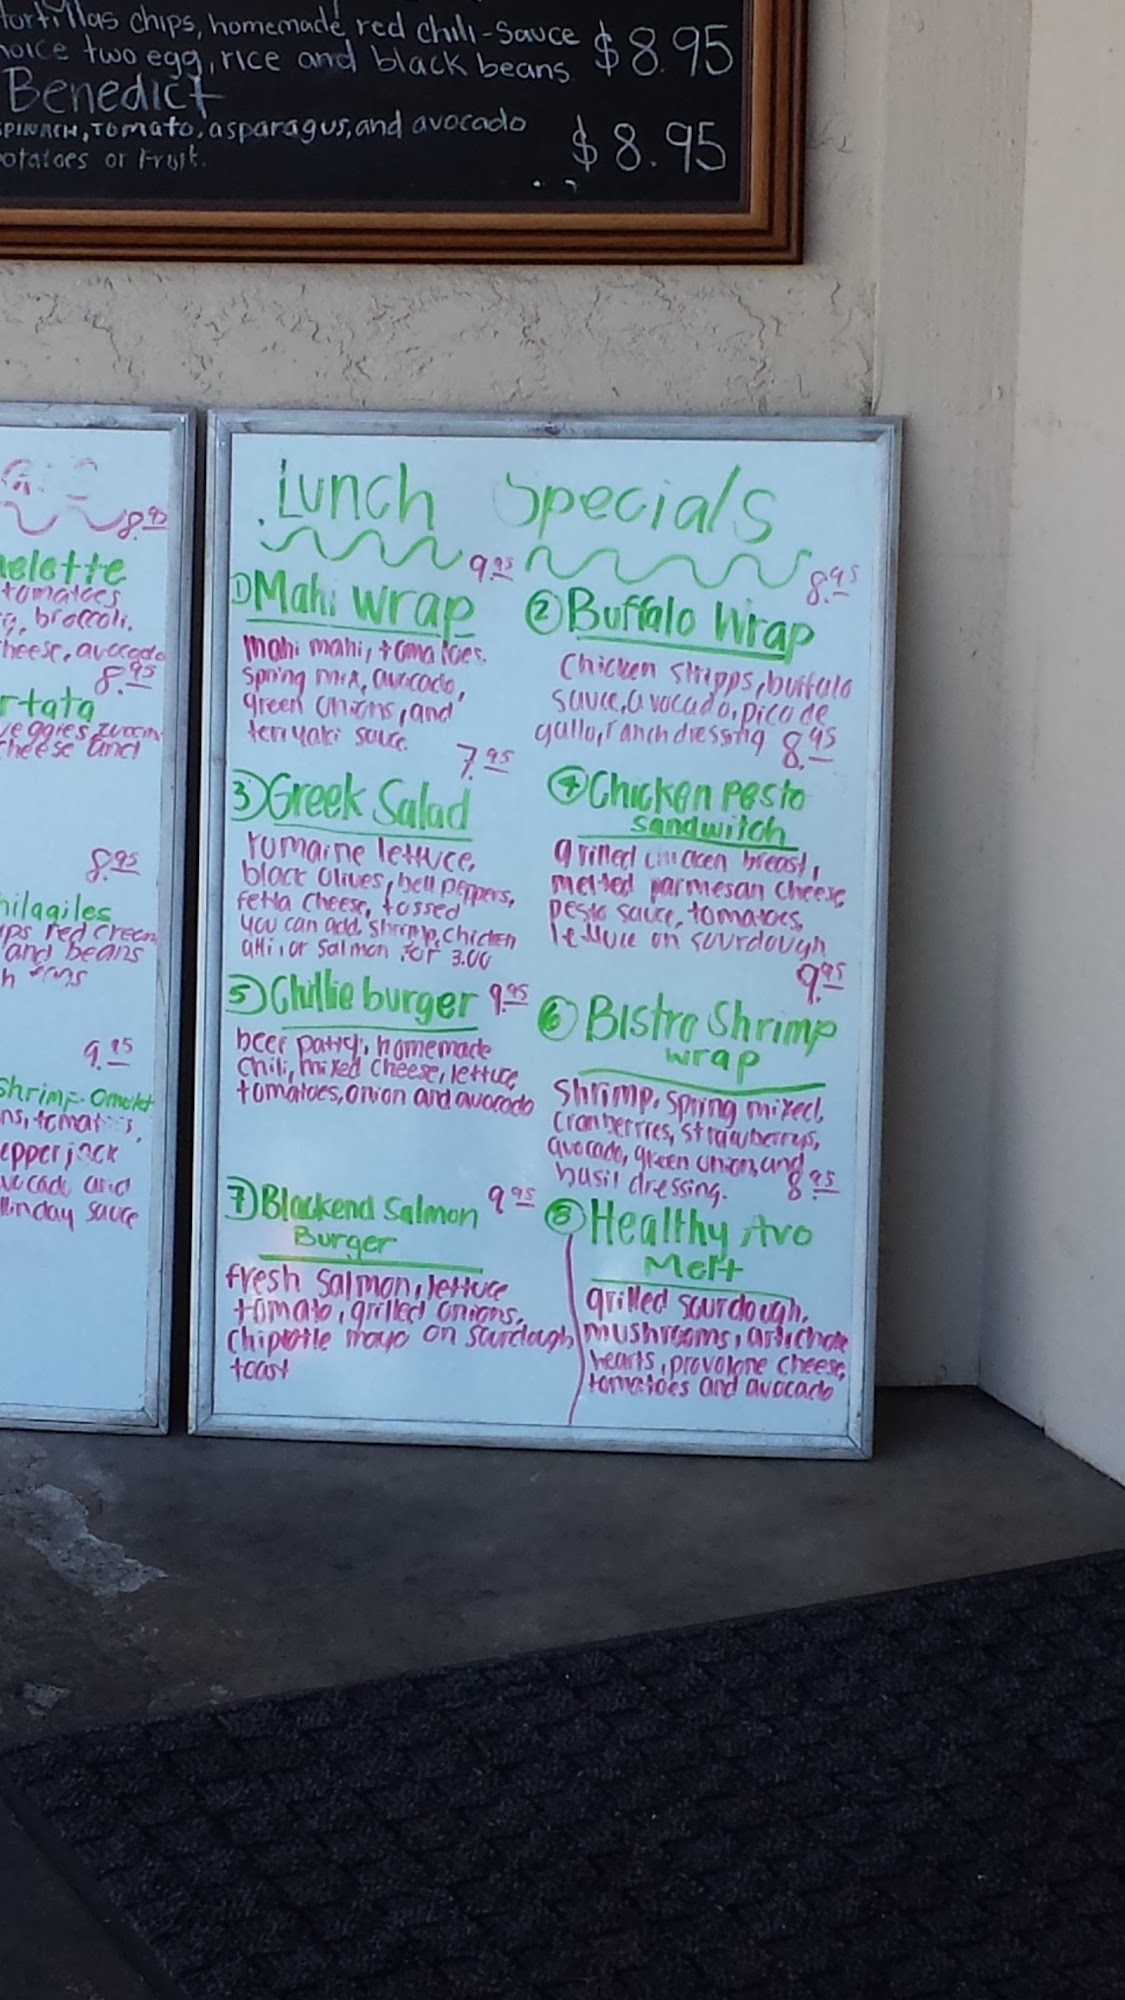 tortillas chips, homemade red chili-sauce $8.95
two egg, rice and black beans
Benedict
SPINACH, Tomato, asparagus, and avocado $8.95
or Fruit.
8.95
tomatoes
broccoli,
cheese, avocado
8.95
veggies zuccin
cheese and
8.95
red green
and beans
9.95
Shrimp-Omelet
pepper jack
and
sauce
Lunch Specials
9.95
① Mahi Wrap
mahi mahi, tomatoes,
spring mix, avocado,
green onions, and
teriyaki sauce.
8.95
② Buffalo Wrap
Chicken stripps, buffalo
sauce, avocado, pico de
gallo, ranch dressing
7.95
3) Greek Salad
romaine lettuce,
black olives, bell peppers,
fetta cheese, tossed
you can add, shrimp, chicken
or salmon for 3.00
8.95
④ Chicken Pesto
Sandwitch
grilled chicken breast,
melted parmesan cheese,
pesto sauce, tomatoes,
lettuce on sourdough
5) Chillie burger 9.95
patty, homemade
chili, mixed cheese, lettuce,
tomatoes, onion and avocado
9.95
⑥ Bistro Shrimp
wrap
Shrimp, spring mixed,
cranberries,
avocado, green onion, and
basil dressing.
7) Blackend Salmon 9.95
Burger
fresh salmon, lettuce
tomato, grilled onions,
chipotle mayo on sourdough
toast
8.95
⑧ Healthy Avo
Melt
grilled sourdough,
mushrooms, artichoke
hearts, provolone cheese,
tomatoes and avocado